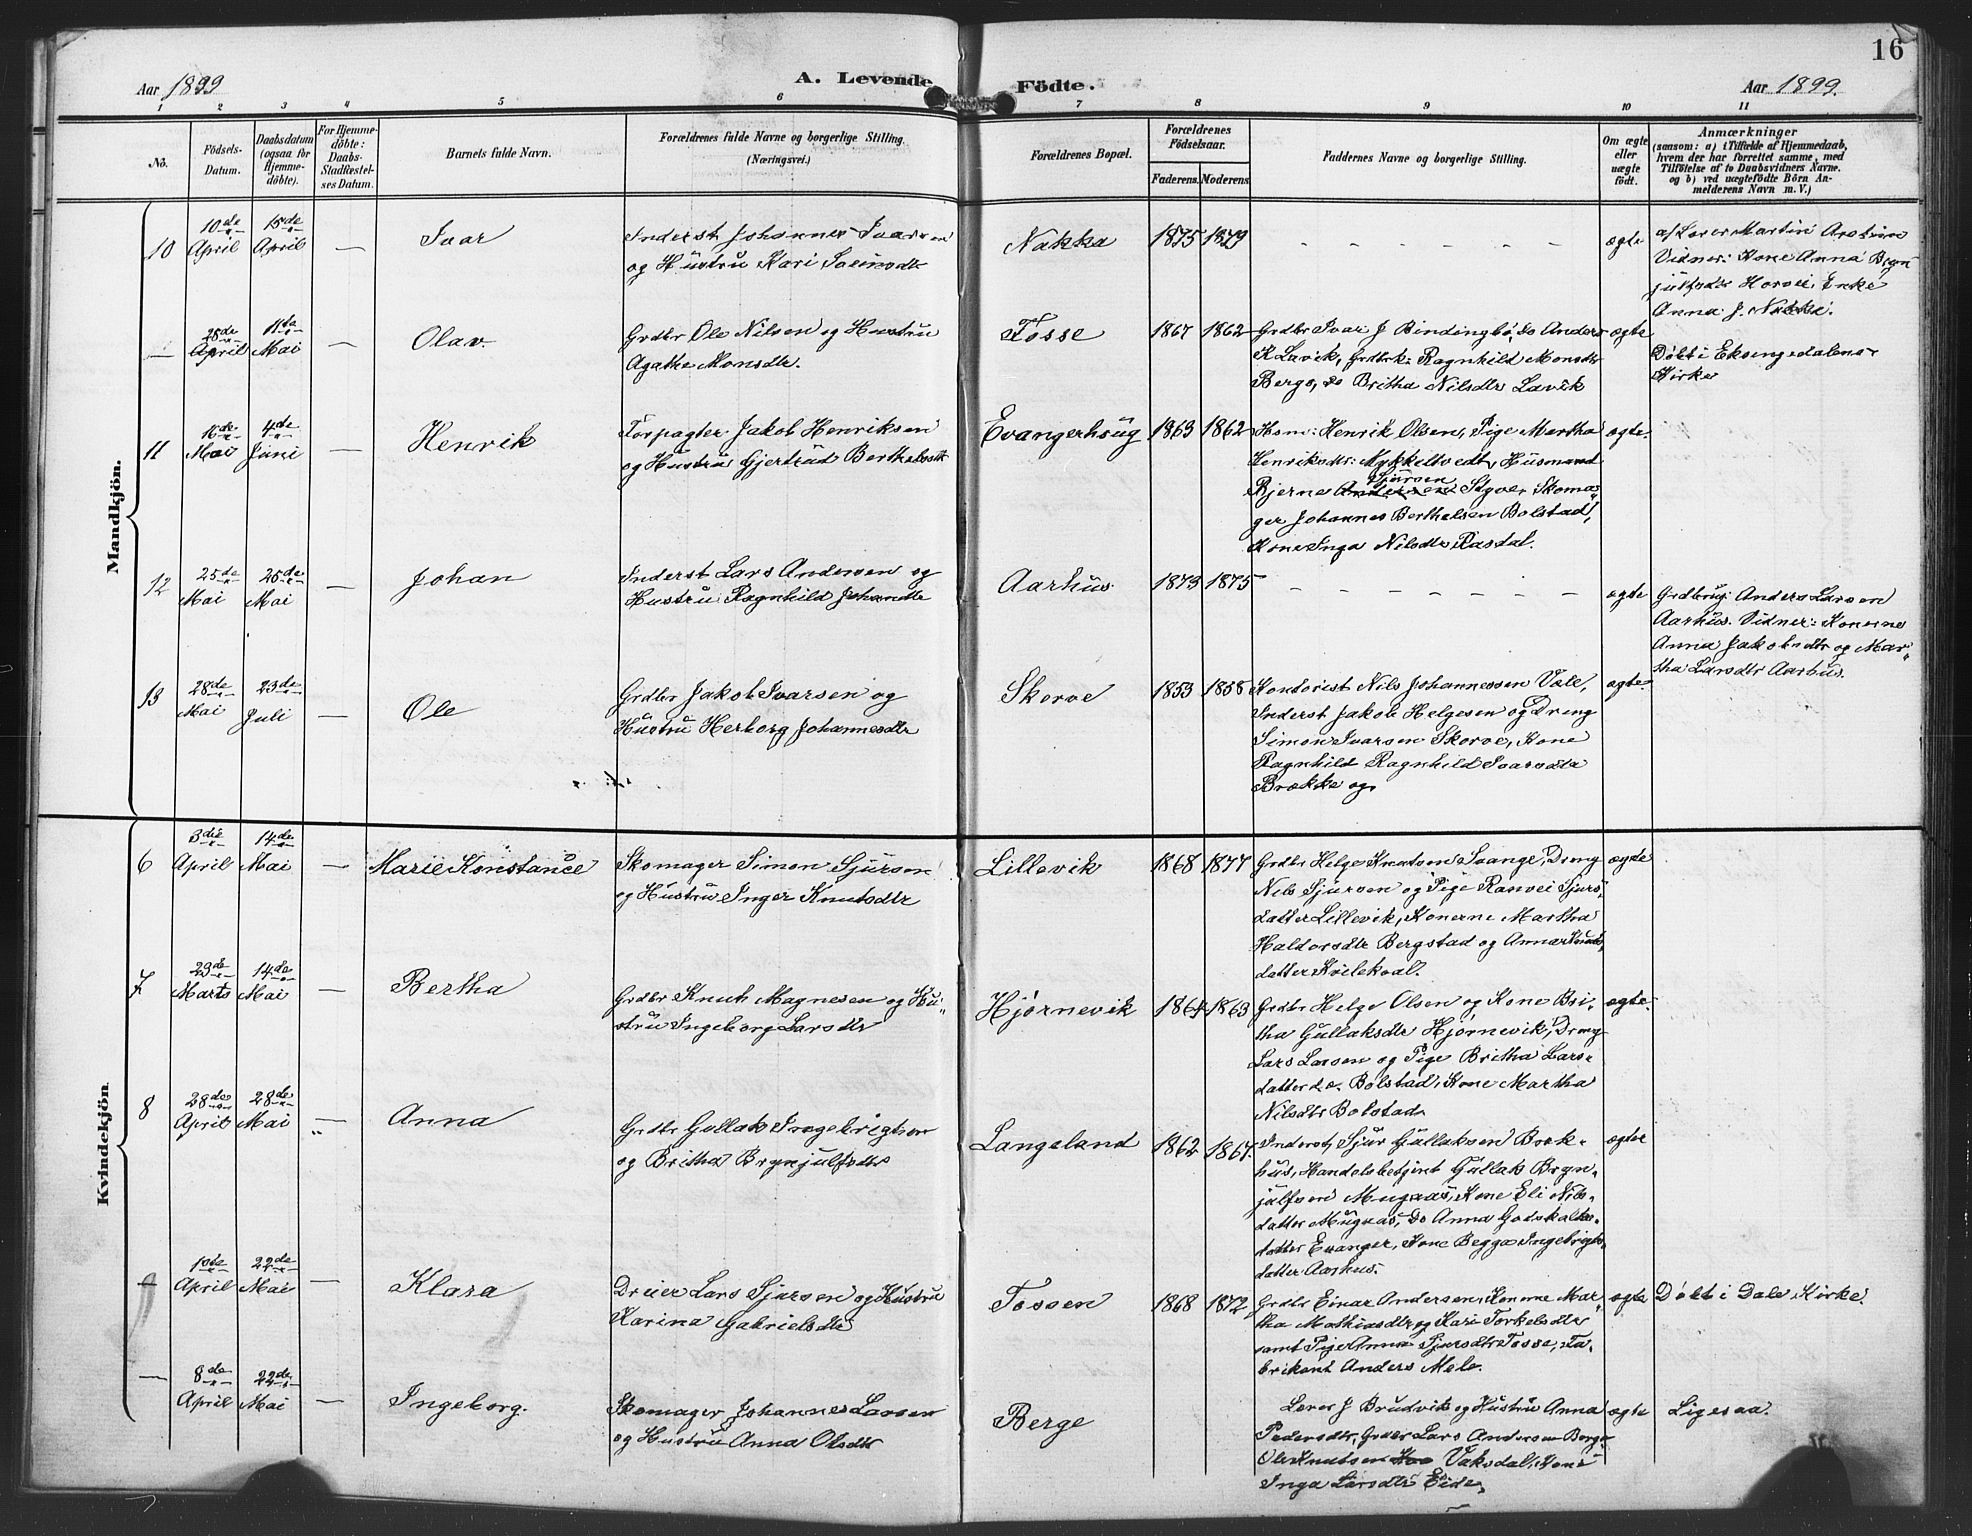 16
Aar 1899
A. Levende Födte.
Aar 1899.
1 2 3 4 5 6 7 8 9 10 11
No.
Födsels-
Datum.
Daabsdatum
(ogsaa for
Hjemme-
döbte).
For Hjemme-
döbte:
Daabs-
Stadfæstel-
ses Datum.
Barnets fulde Navn.
Forældrenes fulde Navne og borgerlige Stilling.
(Næringsvei.)
Forældrenes Bopæl.
Forældrenes
Födselsaar.
Faderens. Moderens.
Faddernes Navne og borgerlige Stilling.
Om ægte
eller
uægte
födt.
Anmærkninger
(saasom: a) i Tilfælde af Hjemmedaab,
hvem der har forrettet samme, med
Tilföielse af to Daabsvidners Navne.
og b) ved uægtefödte Börn An-
melderens Navn m. V.)
Mandkjön.
10
10de
April
15de
April
—
Ivar
Inderst Johannes Ivarsen
og Hustru Kari
Nakka
1875 1879
– – – – – – –
ægte
af Lærer Martin
Vidner: Kone Anna Bryn
Enke
Anna J. Nakke.
—
28de
April
11te
Mai
—
Olav.
Grdbr Ole Nilsen og Hustru
Agathe Monsdtr.
Fosse
1867 1862
Grdbr Ivar J Bindingbø, Do Anders
K Lavik, Grdbrk: Ragnhild Monsdtr
Berge, Do Britha Nilsdtr Lavik
ægte
Døbt i Eksingedalens
Kirke
11
16de
Mai
4de
Juni
—
Henrik
Forpagter Jakob Henriksen
og Hustru Gjertrud Berthelsdtr
Evangerhaug
1863 1862
Hsm: Henrik Olsen, Pige Martha
Henriksdtr: Mykkeltvedt, Husmand
Sjursen
Bjerne Andersen Styve, Skoma„
ger Johannes Berthelsen Bolstad,
Kone Inga Nilsdtr Rasdal.
ægte.
12
25de
Mai
26de
Mai
—
Johan
Inderst Lars Andersen og
Hustru Ragnhild Johansdtr
Aarhus
1873 1875
– – – – – – –
ægte
Grdbrug: Anders Larsen
Aarhus. Vidner: Konerne
Anna Jakobsdtr og Mar„
tha Larsdtr Aarhus.
13
28de
Mai
23de
Juli
—
Ole
Grdbr Jakob Ivarsen og
Hustru Herborg Johannesdtr
Skorve
1853 1858
Kontorist Nils Johannessen Vale,
Inderst Jakob Helgesen og Dreng
Simon Ivarsen Skorve, Kone
Ragnhild Ragnhild Ivarsdtr
Brække og
ægte.
Kvindekjön
6
3die
April
14de
Mai
—
Marie Konstance
Skomager Simon Sjursen
og Hustru Inger Knutsdtr
Lillevik
1868 1877
Grdbr Helge Knutsen Saange, Dreng
Nils Sjursen og Pige Ranvei Sjurs„
datter Lillevik, Konerne Martha
Haldorsdtr Bergstad og Anna Knuts„
datter
ægte
7
29de
Marts
14de
Mai
—
Bertha
Grdbr Knut Magnesen og Hu„
stru Ingeborg Larsdtr
Hjørnevik
1864 1863
Grdbr Helge Olsen og Kone Bri„
tha Gullaksdtr Hjørnevik, Dreng
Lars Larsen og Pige Britha Lars„
datter do. Bolstad, Kone Martha
Nilsdtr Bolstad
ægte.
8
28de
April
28de
Mai
—
Anna
Grdbr Gullak Ingebrigtsen
og Britha Brynjulfsdtr
Langeland
1862 1867.
Inderst Sjur Gullaksen Bræk„
hus, Handelsbetjent Gullak Bryn„
julfsen Mugaas, Kone Eli Nils„
datter Mugaas, Do Anna Godskalks„
datter Evanger, Kone Begga Ingebrigts„
datter Aarhus.
ægte
—
10de
April
22de
Mai
—
Klara
Dreier Lars Sjursen og Hustru
Karina Gabrielsdtr
Fossen
1868 1872
Grdbr Einar Andersen, Konerne Mar„
tha Mathiasdtr og Kari Torkelsdtr
samt Pige Anna Sjursdtr Fosse, Fa„
brikant Anders Mele.
ægte
Døbt i Dale Kirke.
—
8de
April
22de
Mai
—
Ingeborg.
Skomager Johannes Larsen
og Hustru Anna Olsdtr
Berge
Lærer J Brudvik og Hustru Anna
Pedersdtr, Grdbr Lars Andersen Berge
Ole Knutsen Vaksdal, Kone
Inga Larsdtr Eide,
ægte
Ligesaa.